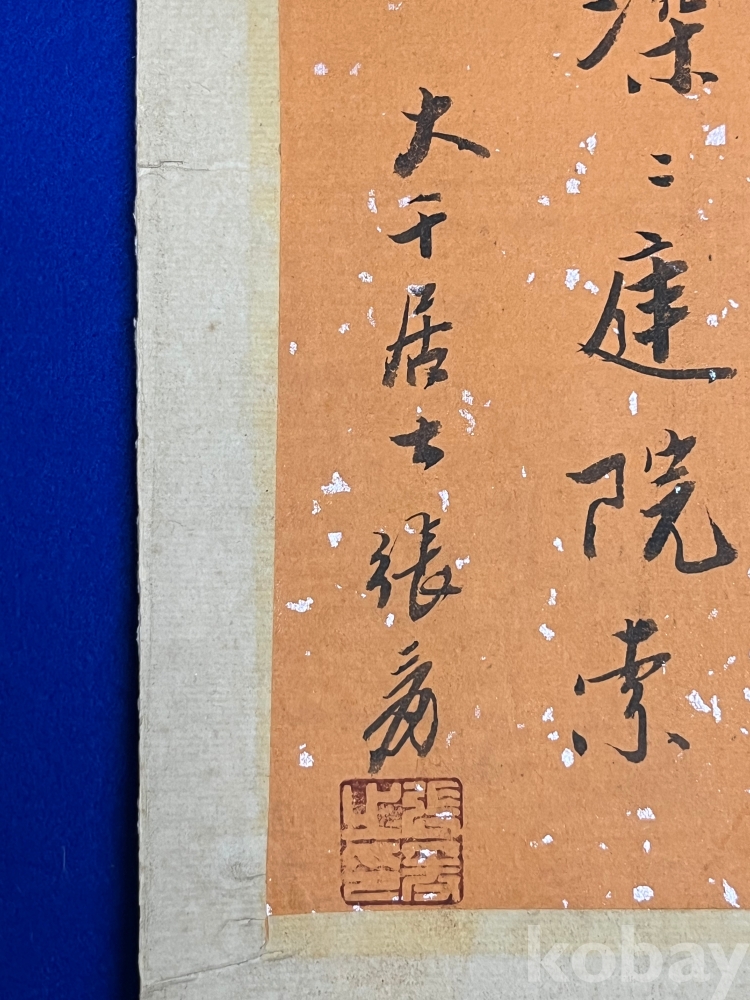 深〻庭院索
大千居士張爰
張爰之印
kobay